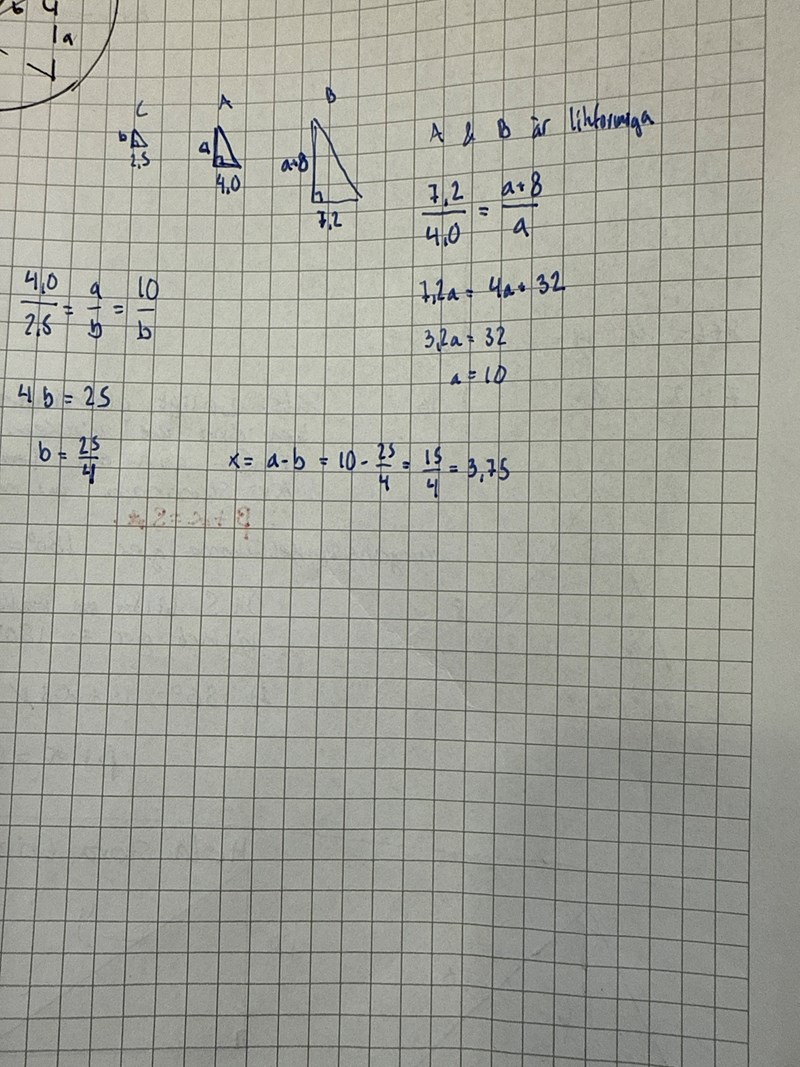 b 4
a
C A B
b a a+8
2,5 4,0 7,2
A & B är likformiga
7,2/4,0 = a+8/a
7,2a = 4a+32
3,2a = 32
a = 10
4,0/2,5 = a/b = 10/b
4b = 25
b = 25/4
x = a-b = 10 - 25/4 = 15/4 = 3,75